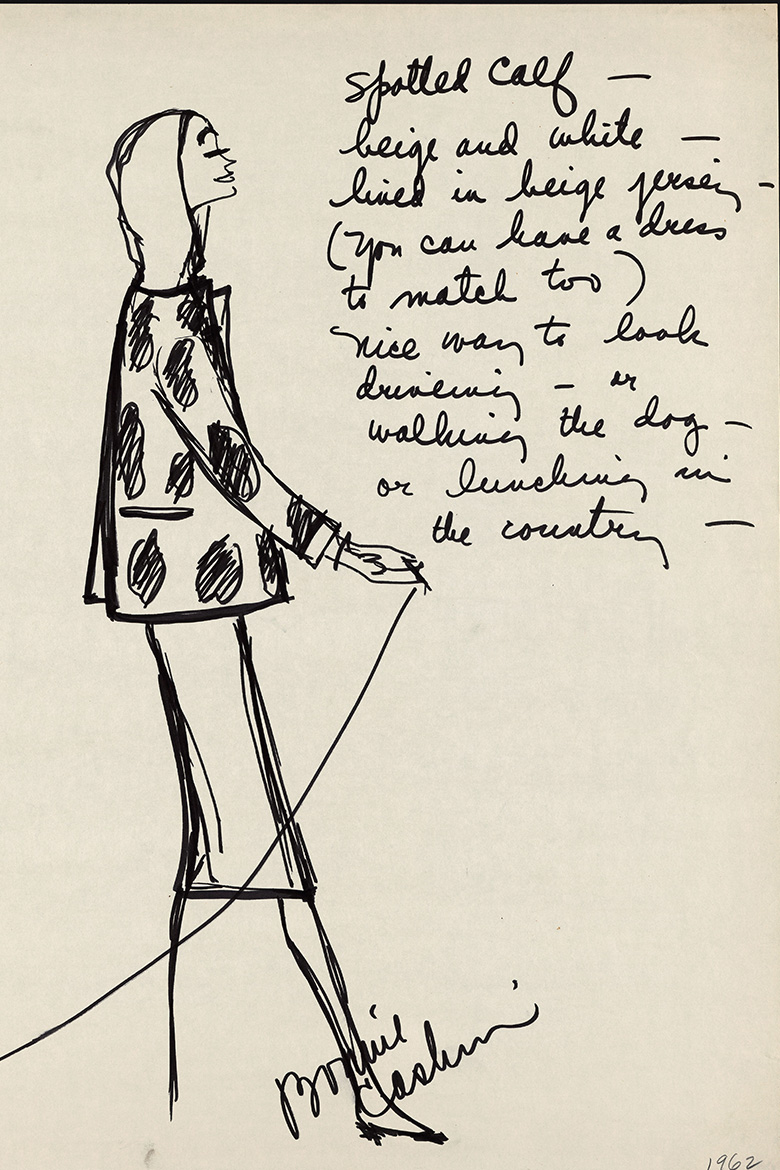 Spotted Calf —
beige and white —
lined in beige jersey -
(you can have a dress
to match too)
nice way to look
driving — or
walking the dog —
or lunching in
the country —
Bonnie
Cashin
1962